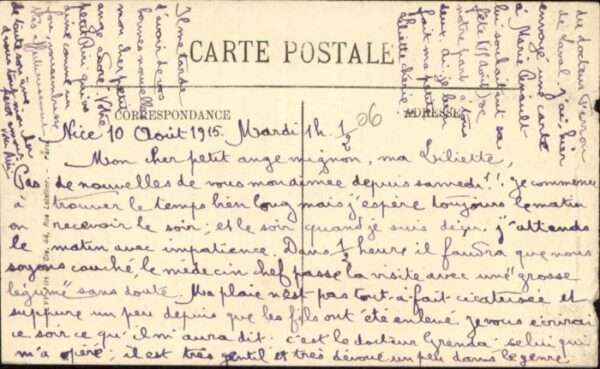 CARTE POSTALE
CORRESPONDANCE
ADRESSE
06
Nice 10 Août 1915. Mardi 1h ½
Mon cher petit ange mignon, ma Liliette,
Pas de nouvelles de vous mon aimée depuis samedi!! je commence
à trouver le temps bien long mais j'espère toujours le matin
en recevoir le soir; et le soir quand je suis déçu. j'attends
le matin avec impatience. Dans ½ heure il faudra que nous
soyons couché, le médecin chef passe la visite avec une "grosse
légume" sans doute. Ma plaie n'est pas tout-à-fait cicatrisée et
suppure un peu depuis que les fils ont été enlevé. je vous écrirai
ce soir ce qu'il m'aura dit. c'est le docteur Grenda selui qui
m'a opéré; il est très gentil et très dévoué un peu dans le genre
du docteur
de Laval. j'ai hier
envoyé une carte
à Marie
lui souhaitant sa
fête
notre part à tous
deux. ai-je bien
fait ma petite
Liliette chérie
Il me tarde
d'avoir de vos
bonnes nouvelles
mon cher petit
ange adoré. Votre
petit Riri qui vous
aime comme un
fou,
de toute son âme